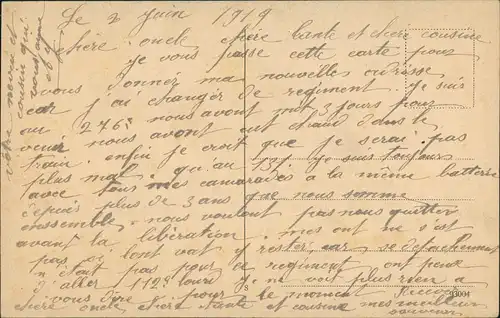 Le 2 juin 1919
chère oncle chère tante et chère cousine
je vous passe cette carte pour
vous donner ma nouvelles adrisse
car j'ai changer de regiment. Je suis
au 276e nous avont mit 3 jours pour
venir nous avont eut chaud dans le
train. enfin je croit que je serai pas
plus mal qu'au je suis toujours
avec tous mes camarades a la même batterie
depuis plus de 3 ans que nous somme
enssemble. nous voulont pas nous quitter
avant la libération. mes ont ne s'est
pas si lont vat y rester, car se detachement
n'était pas pour ce regiment ont peux
d'aller 112e lourd je ne voit plus rien a
vous dire pour le moment Recevez
chère oncle chère tante et cousine mes meilleur
souvenir
votre neveu et
cousin qui
vous aime
93004